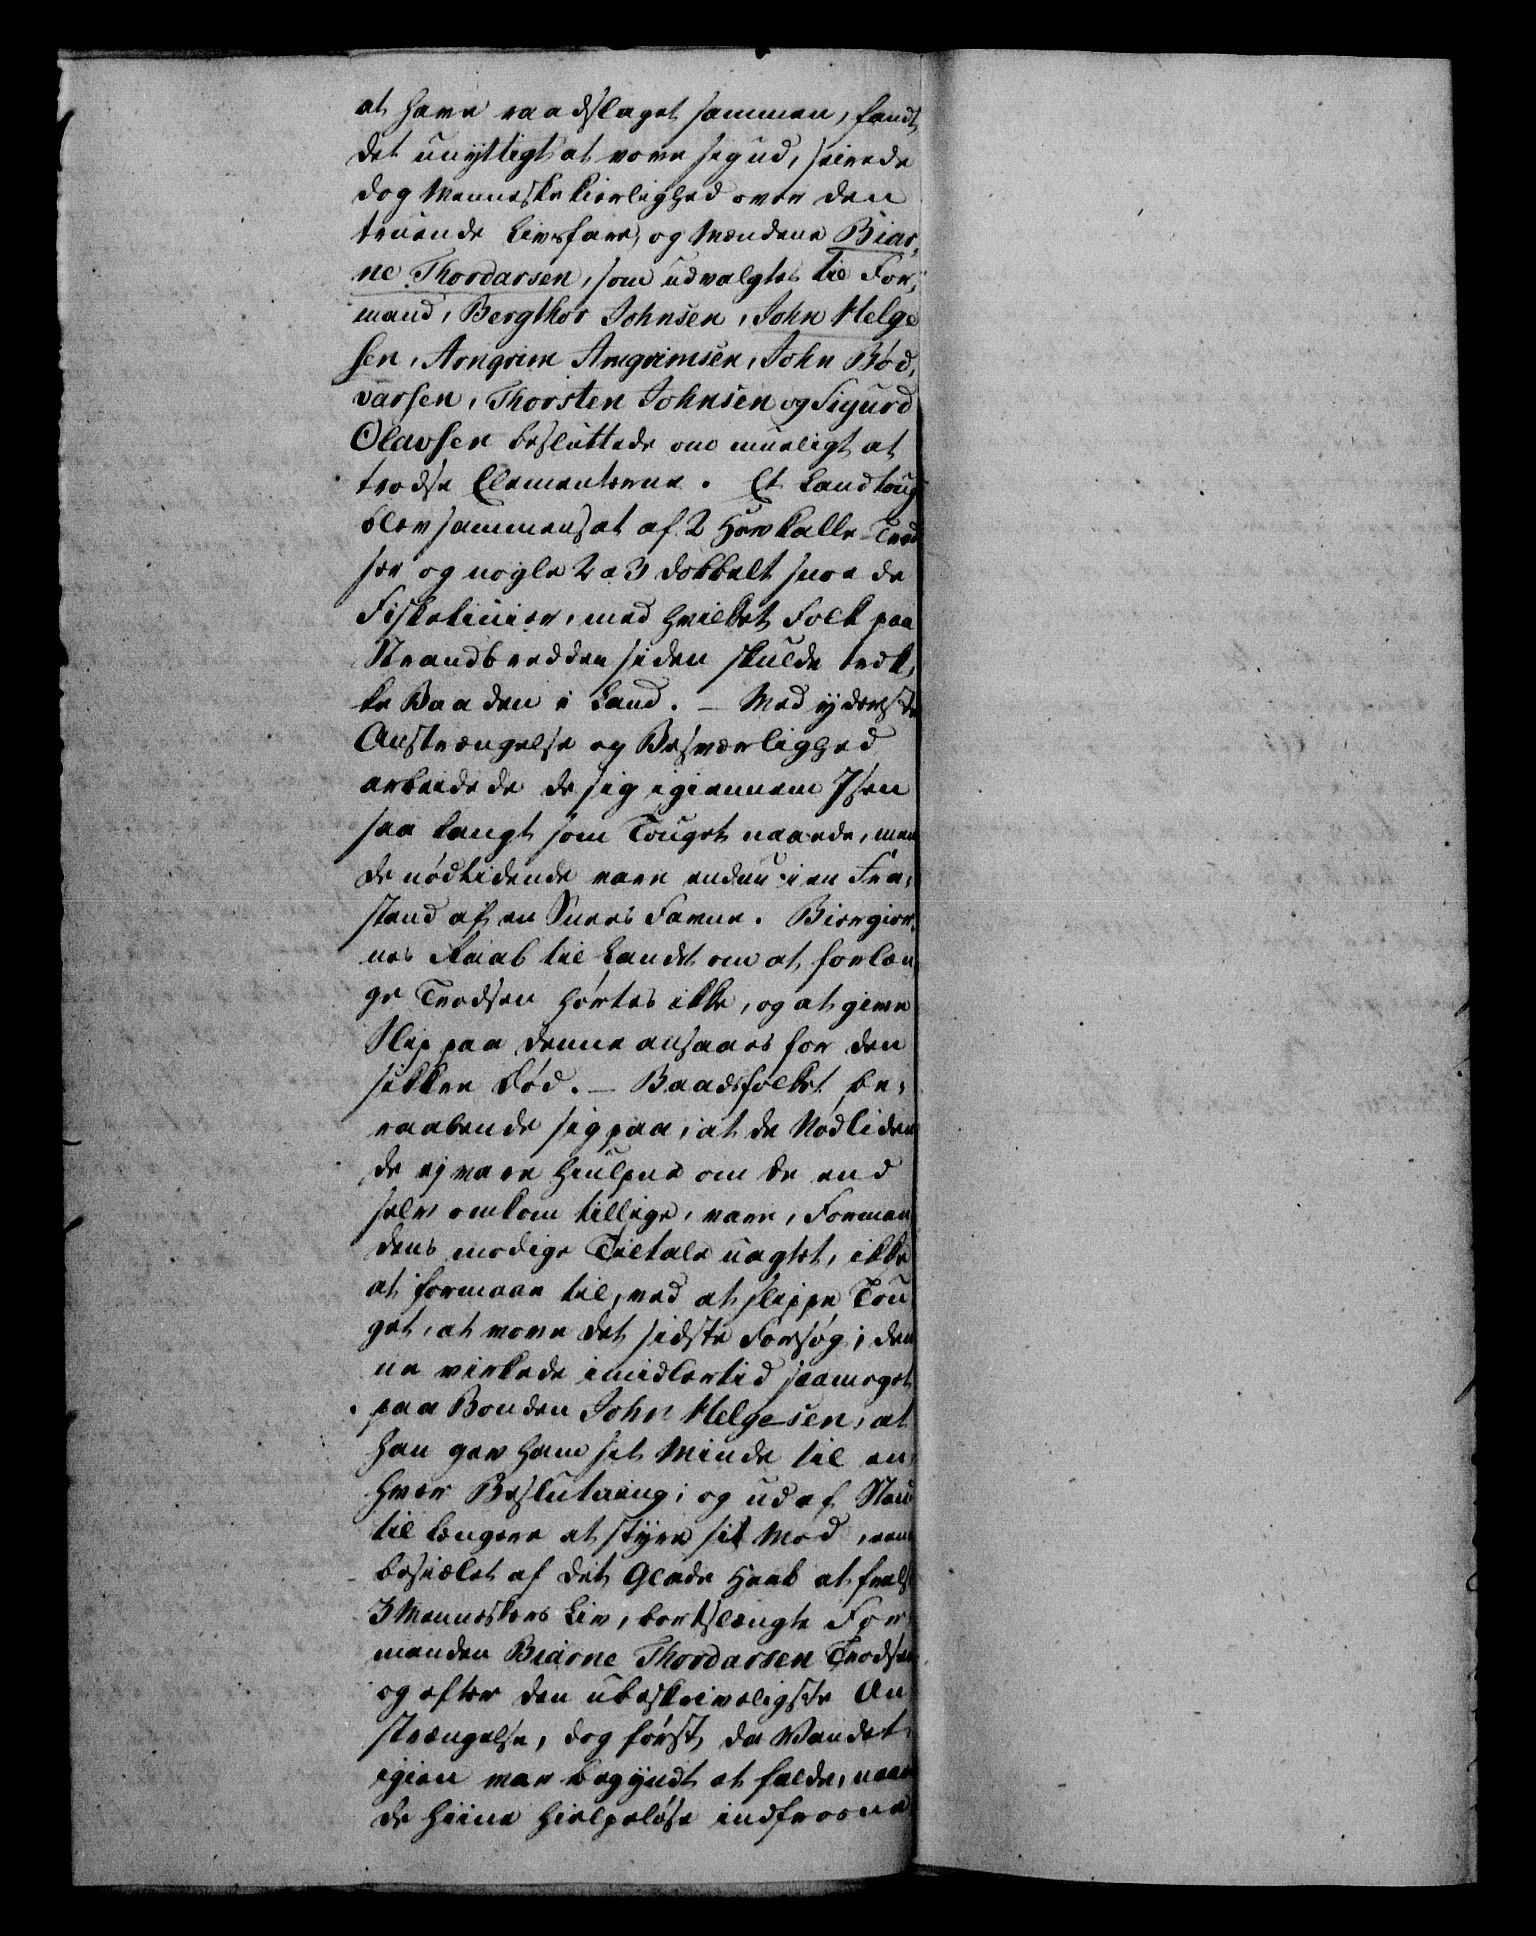 at have raadslaget sammen, fandt
det unyttigt at vove sig ud, seirede
dog Menneskekierlighed over den
truende Livsfare, og Mændene Biar,
ne Thordarsen, som udvalgtes til For,
mand, Bergthor Johnsen, John Helge
sen, Arngrim Arngrimsen, John Bød,
varsen, Thorsten Johnsen og Sigurd
Olavsen besluttede om mueligt at
trodse Elementerne. Et Landtoug
blev sammensat af 2 Trod
ser og nogle 2 a 3 dobbelt snoede
Fiskelinier, med hvilket Folk paa
Strandbredden siden skulde træk,
ke Baaden i Land. – Med yderste
Anstrængelse og Besværlighed
arbeidede de sig igiennem Isen
saa langt som Touget naaede, men
de nødlidende vare endnu i en Fra,
stand af en Snees Favne. Biergier,
nes Raab til Landet om at forlæn,
ge Trodsen hørtes ikke, og at give
Slip paa denne ansaaes for den
sikkre Død. – Baadsfolket, be,
raabende sig paa, at de Nødliden
de ej vare hiulpne om de end
selv omkom tillige, vare, Forman
dens modige Tiltale uagtet, ikke
at formaae til, ved at slippe Tou
get, at vove det sidste Forsøg; den
ne virkede imidlertid saameget
paa Bonden John Helgesen, at
han gav ham sit Minde til en,
hver Beslutning; og ud af Stand
til længere at styre sit Mod, som
besielet af det Glade Haab at frelse
3 Menneskers Liv, bortslængte For
manden Biarne Thordarsen Trodsen
og efter den ubeskriveligste An
strængelse, dog først da Vandet
igien var begyndt at falde, naaede
de hiine hielpeløse indfrosne